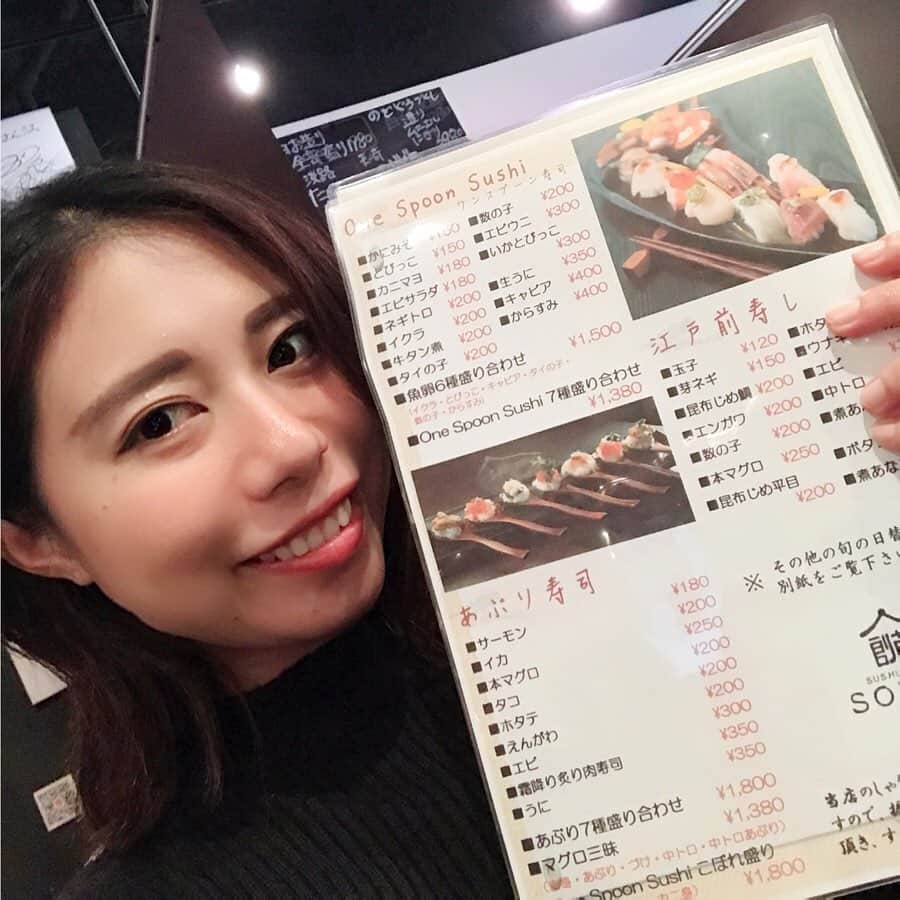 One Spoon Sushi
ワンスプーン寿司
■かにみそ ¥150
■とびっこ ¥150
■カニマヨ ¥180
■エビサラダ ¥180
■ネギトロ ¥200
■イクラ ¥200
■牛タン煮 ¥200
■タイの子 ¥200
■数の子 ¥200
■エビウニ ¥300
■いかとびっこ ¥300
■生うに ¥350
■キャビア ¥400
■からすみ ¥400
■魚卵6種盛り合わせ ¥1,500
(イクラ・とびっこ・キャビア・タイの子・
数の子・からすみ)
■One Spoon Sushi 7種盛り合わせ ¥1,380
江戸前寿し
■玉子 ¥120
■芽ネギ ¥150
■昆布じめ鯛 ¥200
■エンガワ ¥200
■数の子 ¥200
■本マグロ ¥250
■昆布じめ平目 ¥200
■ホタ
■ウナギ
■エビ
■中トロ
■煮あ
■ボタ
■煮あな
※ その他の旬の日替
別紙をご覧下さい
あぶり寿司
■サーモン ¥180
■イカ ¥200
■本マグロ ¥250
■タコ ¥200
■ホタテ ¥200
■えんがわ ¥200
■エビ ¥300
■霜降り炙り肉寿司 ¥350
■うに ¥350
■あぶり7種盛り合わせ ¥1,800
■マグロ三昧 ¥1,380
・あぶり・づけ・中トロ・中トロあぶり)
Spoon Sushi こぼれ盛り ¥1,800
SUSHI
SO
当店のしゃ
すので、
頂き、す